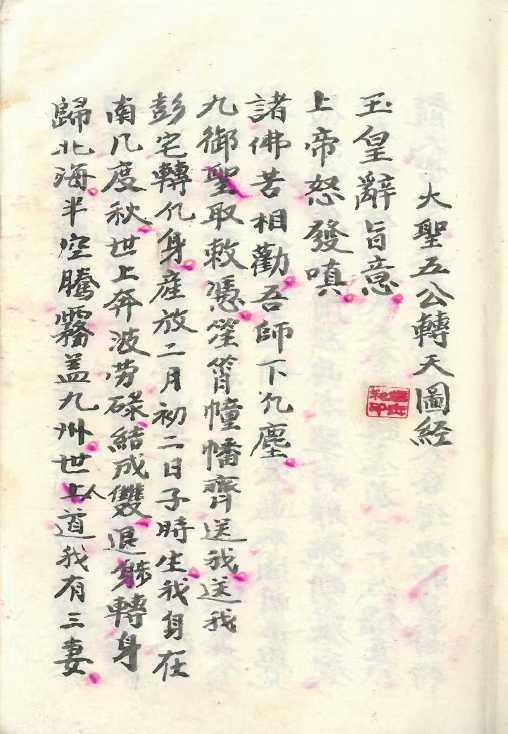 大聖五公轉天圖経
玉皇辭旨意
上帝怒發嗔
諸佛苦相勸吾師下凢塵
九御聖取敕憑筶筲幢幡齊送我送我
彭宅轉凢身座放二月初二日子時生我身在
南几度秋世上奔波劳碌結成雙退身轉身
歸北海半空騰霧盖九州世上人道我有三妻